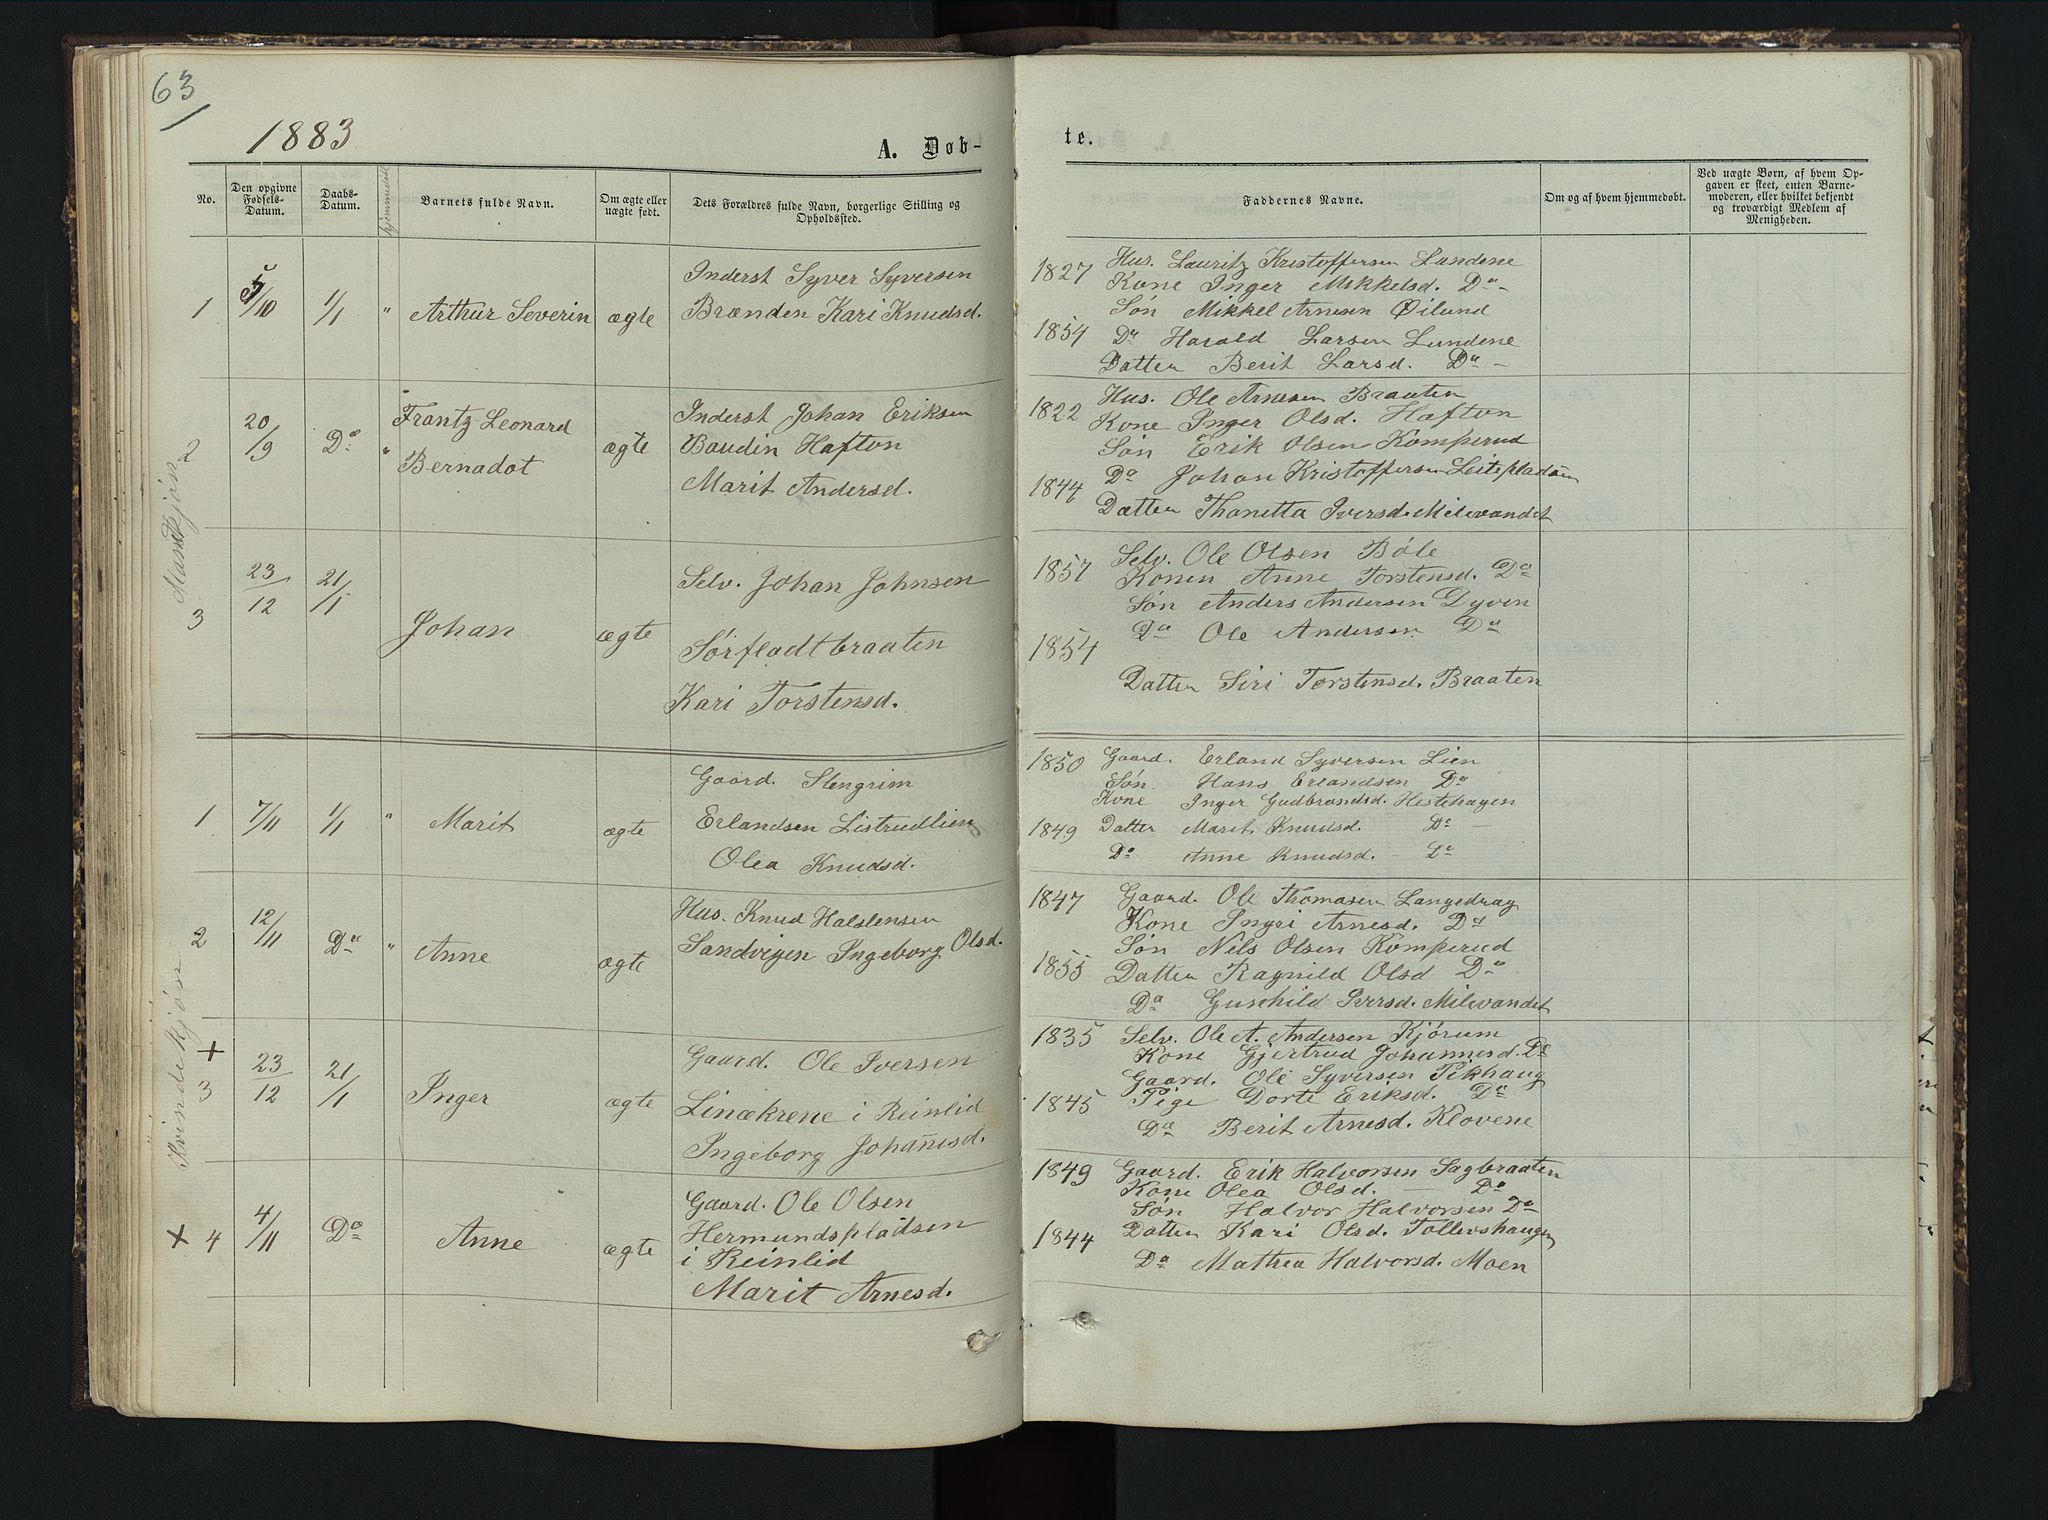 63
1883
A. Døb-
te.
No.
Den opgivne Fødsels-Datum.
Daabs-Datum.
hjemmedøbt
Barnets fulde Navn.
Om ægte eller uægte født.
Dets Forældres fulde Navn, borgerlige Stilling og Opholdssted.
Faddernes Navne.
Om og af hvem hjemmedøbt.
Ved uægte Børn, af hvem Opgaven er skeet, enten Barnemoderen, eller hvilket bekjendt og troværdigt Medlem af Menigheden.
Mandkjøn
1 5/10 1/1 " Arthur Severin ægte
Inderst Syver Syversen
Brænden Kari Knudsd.
1827
1854
Hus. Lauritz Kristoffersen Lundene
Kone Inger Mikkelsd. Do -
Søn Mikkel Arnesen Øilund
Do Harald Larsen Lundene
Datter Berit Larsd. Do -
2 20/9 Do " Frantz Leonard
Bernadot
ægte
Inderst Johan Eriksen
Baudin Hafton
Marit Andersd.
1822
1844
Hus. Ole Arnesen Braaten
Kone Inger Olsd. Hafton
Søn Erik Olsen Komperud
Do Johan Kristoffersen Leitepladsen
Datter Thonetta Iversd. Milevandet
3 23/12 21/1 Johan ægte
Selv. Johan Johnsen
Sørfladtbraaten
Kari Torstensd.
1857
1854
Selv. Ole Olsen Bøle
Konen Anne Torstensd. Do
Søn Anders Andersen Dyven
Do Ole Andersen Do
Datter Siri Torstensd. Braaten
Kvindekjøn
1 7/11 1/1 " Marit ægte
Gaard. Stengrim
Erlandsen Listrudlien
Olea Knudsd.
1850
1849
Gaard. Erland Syversen Lien
Søn Hans Erlandsen Do
Kone Inger Gudbrandsd. Hestehagen
Datter Marit Knudsd. Do -
Do Anne Knudsd. - Do
2 12/11 Do " Anne ægte
Hus. Knud Halstensen
Sandvigen Ingeborg Olsd.
1847
1855
Gaard. Ole Thomasen Langedrag
Kone Ingri Arnesd. Do
Søn Nils Olsen Komperud
Datter Ragnild Olsd Do
Do Gunhild Iversd. Milevandet
+ 3 23/12 21/1 Inger ægte
Gaard. Ole Iversen
Linækrene i Reinlid
Ingeborg Johannesd.
1835
1845
Selv. Ole A. Andersen Kjørum
Kone Gjertrud Johannesd. Do
Gaard. Ole Syversen Pikhaug
Pige Dorte Eriksd. Do
Do Berit Arnesd. Klovene
+ 4 4/11 Do Anne ægte
Gaard. Ole Olsen
Hermundspladsen
i Reinlid
Marit Arnesd.
1849
1844
Gaard. Erik Halvorsen Sagbraaten
Kone Olea Olsd. - Do
Søn Halvor Halvorsen Do
Datter Kari Olsd. Tollevshaugen
Do Mathea Halvorsd. Moen